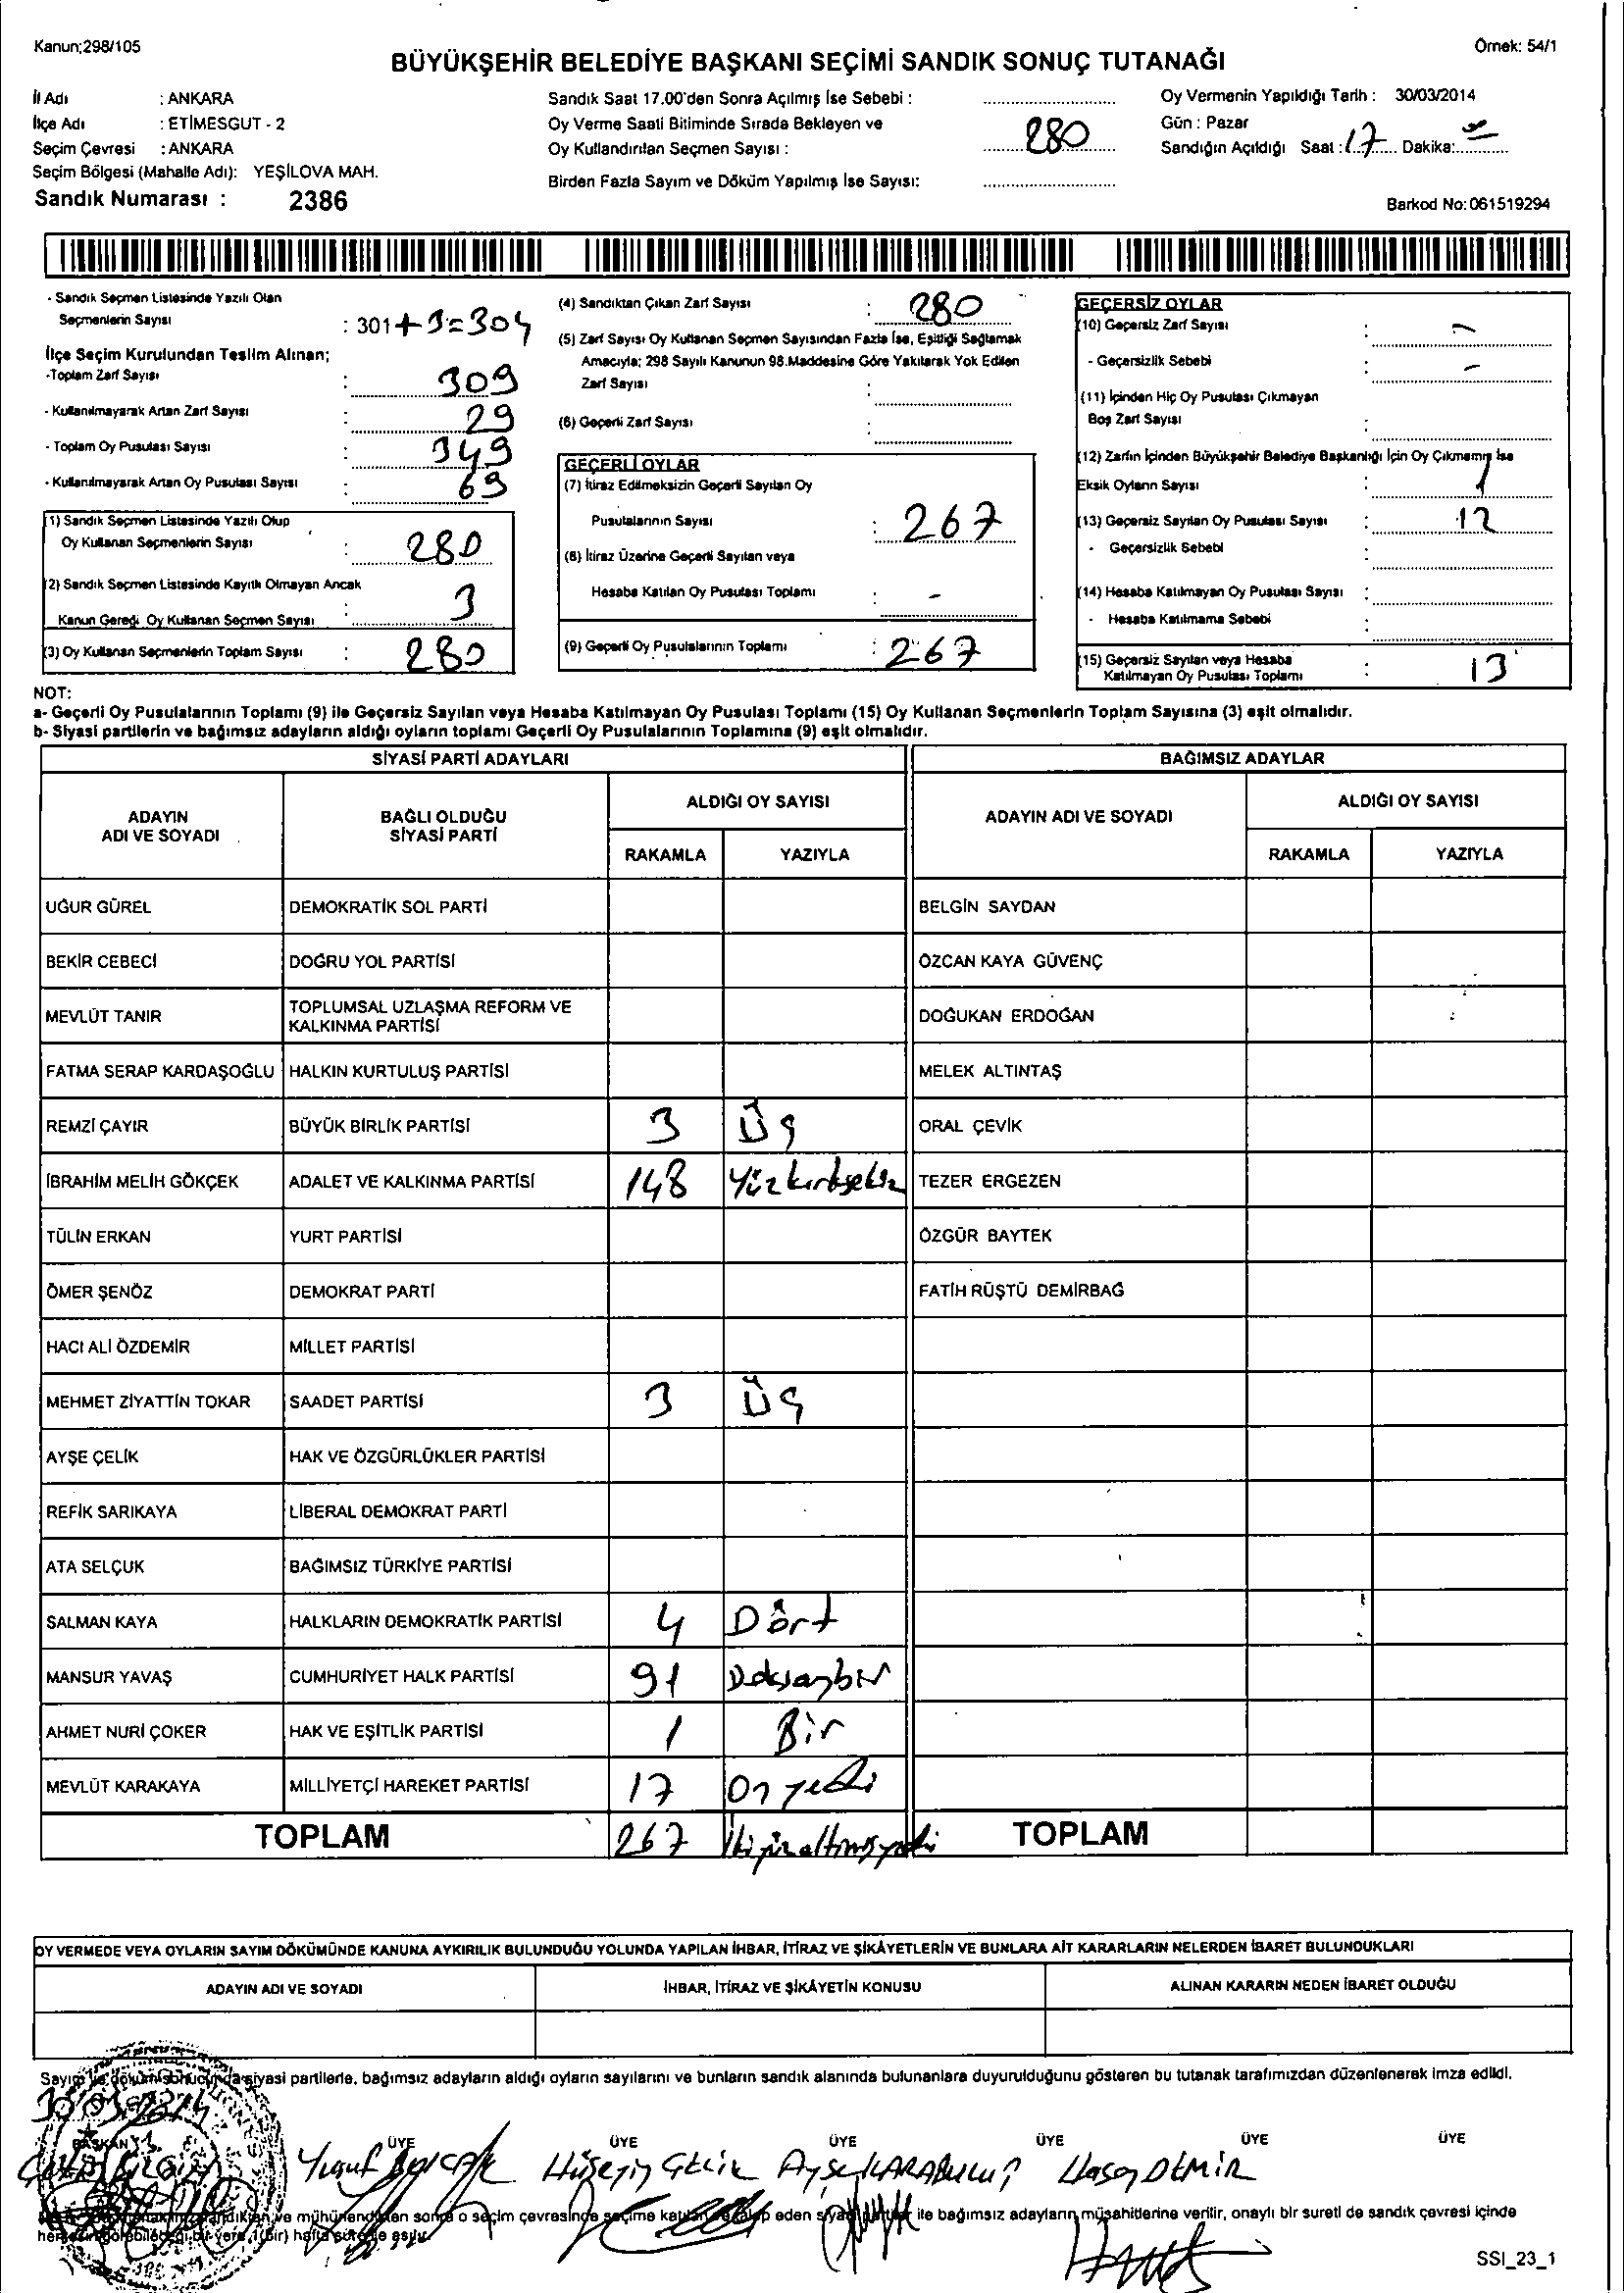 Kanun;298/105
Örnek: 54/1
BÜYÜKŞEHİR BELEDİYE BAŞKANI SEÇİMİ SANDIK SONUÇ TUTANAĞI
İl Adı : ANKARA
İlçe Adı : ETİMESGUT - 2
Seçim Çevresi : ANKARA
Seçim Bölgesi (Mahalle Adı): YEŞİLOVA MAH.
Sandık Numarası : 2386
Sandık Saat 17.00'den Sonra Açılmış İse Sebebi :
Oy Verme Saati Bitiminde Sırada Bekleyen ve
Oy Kullandırılan Seçmen Sayısı : 280
Birden Fazla Sayım ve Döküm Yapılmış İse Sayısı:
Oy Vermenin Yapıldığı Tarih : 30/03/2014
Gün : Pazar
Sandığın Açıldığı Saat : 17 Dakika:
Barkod No: 061519294
- Sandık Seçmen Listesinde Yazılı Olan
Seçmenlerin Sayısı : 301+3=304
İlçe Seçim Kurulundan Teslim Alınan;
-Toplam Zarf Sayısı : 309
- Kullanılmayarak Artan Zarf Sayısı : 29
- Toplam Oy Pusulası Sayısı : 349
- Kullanılmayarak Artan Oy Pusulası Sayısı : 69
(1) Sandık Seçmen Listesinde Yazılı Olup
Oy Kullanan Seçmenlerin Sayısı : 280
(2) Sandık Seçmen Listesinde Kayıtlı Olmayan Ancak
Kanun Gereği Oy Kullanan Seçmen Sayısı : 3
(3) Oy Kullanan Seçmenlerin Toplam Sayısı : 280
(4) Sandıktan Çıkan Zarf Sayısı : 280
(5) Zarf Sayısı Oy Kullanan Seçmen Sayısından Fazla İse, Eşitliği Sağlamak
Amacıyla; 298 Sayılı Kanunun 98.Maddesine Göre Yakılarak Yok Edilen
Zarf Sayısı :
(6) Geçerli Zarf Sayısı :
GEÇERLİ OYLAR
(7) İtiraz Edilmeksizin Geçerli Sayılan Oy
Pusulalarının Sayısı : 267
(8) İtiraz Üzerine Geçerli Sayılan veya
Hesaba Katılan Oy Pusulası Toplamı : -
(9) Geçerli Oy Pusulalarının Toplamı : 267
GEÇERSİZ OYLAR
(10) Geçersiz Zarf Sayısı : -
- Geçersizlik Sebebi : -
(11) İçinden Hiç Oy Pusulası Çıkmayan
Boş Zarf Sayısı :
(12) Zarfın İçinden Büyükşehir Belediye Başkanlığı İçin Oy Çıkmamış İse
Eksik Oyların Sayısı : 1
(13) Geçersiz Sayılan Oy Pusulası Sayısı : 12
- Geçersizlik Sebebi :
(14) Hesaba Katılmayan Oy Pusulası Sayısı :
- Hesaba Katılmama Sebebi :
(15) Geçersiz Sayılan veya Hesaba
Katılmayan Oy Pusulası Toplamı : 13
NOT:
a- Geçerli Oy Pusulalarının Toplamı (9) ile Geçersiz Sayılan veya Hesaba Katılmayan Oy Pusulası Toplamı (15) Oy Kullanan Seçmenlerin Toplam Sayısına (3) eşit olmalıdır.
b- Siyasi partilerin ve bağımsız adayların aldığı oyların toplamı Geçerli Oy Pusulalarının Toplamına (9) eşit olmalıdır.
SİYASİ PARTİ ADAYLARI BAĞIMSIZ ADAYLAR
ADAYIN ADI VE SOYADI BAĞLI OLDUĞU SİYASİ PARTİ ALDIĞI OY SAYISI ADAYIN ADI VE SOYADI ALDIĞI OY SAYISI
RAKAMLA YAZIYLA RAKAMLA YAZIYLA
UĞUR GÜREL DEMOKRATİK SOL PARTİ BELGİN SAYDAN
BEKİR CEBECİ DOĞRU YOL PARTİSİ ÖZCAN KAYA GÜVENÇ
MEVLÜT TANIR TOPLUMSAL UZLAŞMA REFORM VE KALKINMA PARTİSİ DOĞUKAN ERDOĞAN
FATMA SERAP KARDAŞOĞLU HALKIN KURTULUŞ PARTİSİ MELEK ALTINTAŞ
REMZİ ÇAYIR BÜYÜK BİRLİK PARTİSİ 3 Üç ORAL ÇEVİK
İBRAHİM MELİH GÖKÇEK ADALET VE KALKINMA PARTİSİ 148 Yüzkırksekiz TEZER ERGEZEN
TÜLİN ERKAN YURT PARTİSİ ÖZGÜR BAYTEK
ÖMER ŞENÖZ DEMOKRAT PARTİ FATİH RÜŞTÜ DEMİRBAĞ
HACI ALİ ÖZDEMİR MİLLET PARTİSİ
MEHMET ZİYATTİN TOKAR SAADET PARTİSİ 3 Üç
AYŞE ÇELİK HAK VE ÖZGÜRLÜKLER PARTİSİ
REFİK SARIKAYA LİBERAL DEMOKRAT PARTİ
ATA SELÇUK BAĞIMSIZ TÜRKİYE PARTİSİ
SALMAN KAYA HALKLARIN DEMOKRATİK PARTİSİ 4 Dört
MANSUR YAVAŞ CUMHURİYET HALK PARTİSİ 91 Doksanbir
AHMET NURİ ÇOKER HAK VE EŞİTLİK PARTİSİ 1 Bir
MEVLÜT KARAKAYA MİLLİYETÇİ HAREKET PARTİSİ 17 On yedi
TOPLAM 267 İkiyüzaltmışyedi TOPLAM
OY VERMEDE VEYA OYLARIN SAYIM DÖKÜMÜNDE KANUNA AYKIRILIK BULUNDUĞU YOLUNDA YAPILAN İHBAR, İTİRAZ VE ŞİKÂYETLERİN VE BUNLARA AİT KARARLARIN NELERDEN İBARET BULUNDUKLARI
ADAYIN ADI VE SOYADI İHBAR, İTİRAZ VE ŞİKÂYETİN KONUSU ALINAN KARARIN NEDEN İBARET OLDUĞU
Sayım ve döküm sonucunda siyasi partilerle, bağımsız adayların aldığı oyların sayılarını ve bunların sandık alanında bulunanlara duyurulduğunu gösteren bu tutanak tarafımızdan düzenlenerek imza edildi.
30/03/2014
BAŞKAN ÜYE ÜYE ÜYE ÜYE ÜYE ÜYE
Yusuf Hüseyin Çelik Ayşe KARABULUT Hasan DEMİR
ve mühürlendikten sonra o seçim çevresinde seçime katılan eden siyasi partiler ile bağımsız adayların müşahitlerine verilir, onaylı bir sureti de sandık çevresi içinde
herkesin görebileceği bir yere 1(bir) hafta süre ile asılır.
SSI_23_1